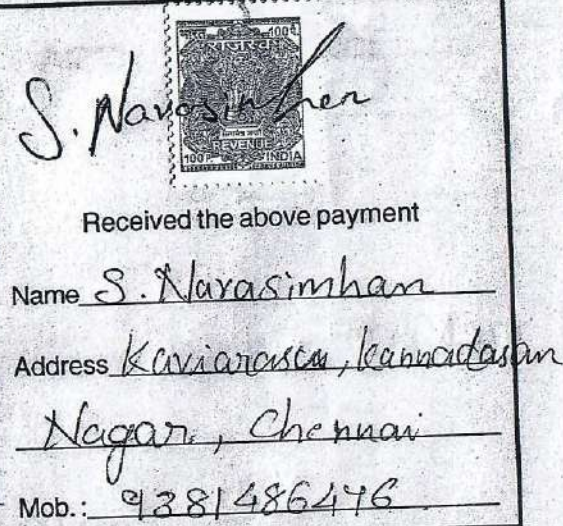 भारत 100 पै.
राजस्व
S. Narasimhan
सत्यमेव जयते
REVENUE
100 P. INDIA
Received the above payment
Name S. Narasimhan
Address Kaviarasu, kannadasan
Nagar, Chennai
Mob.: 9381486446